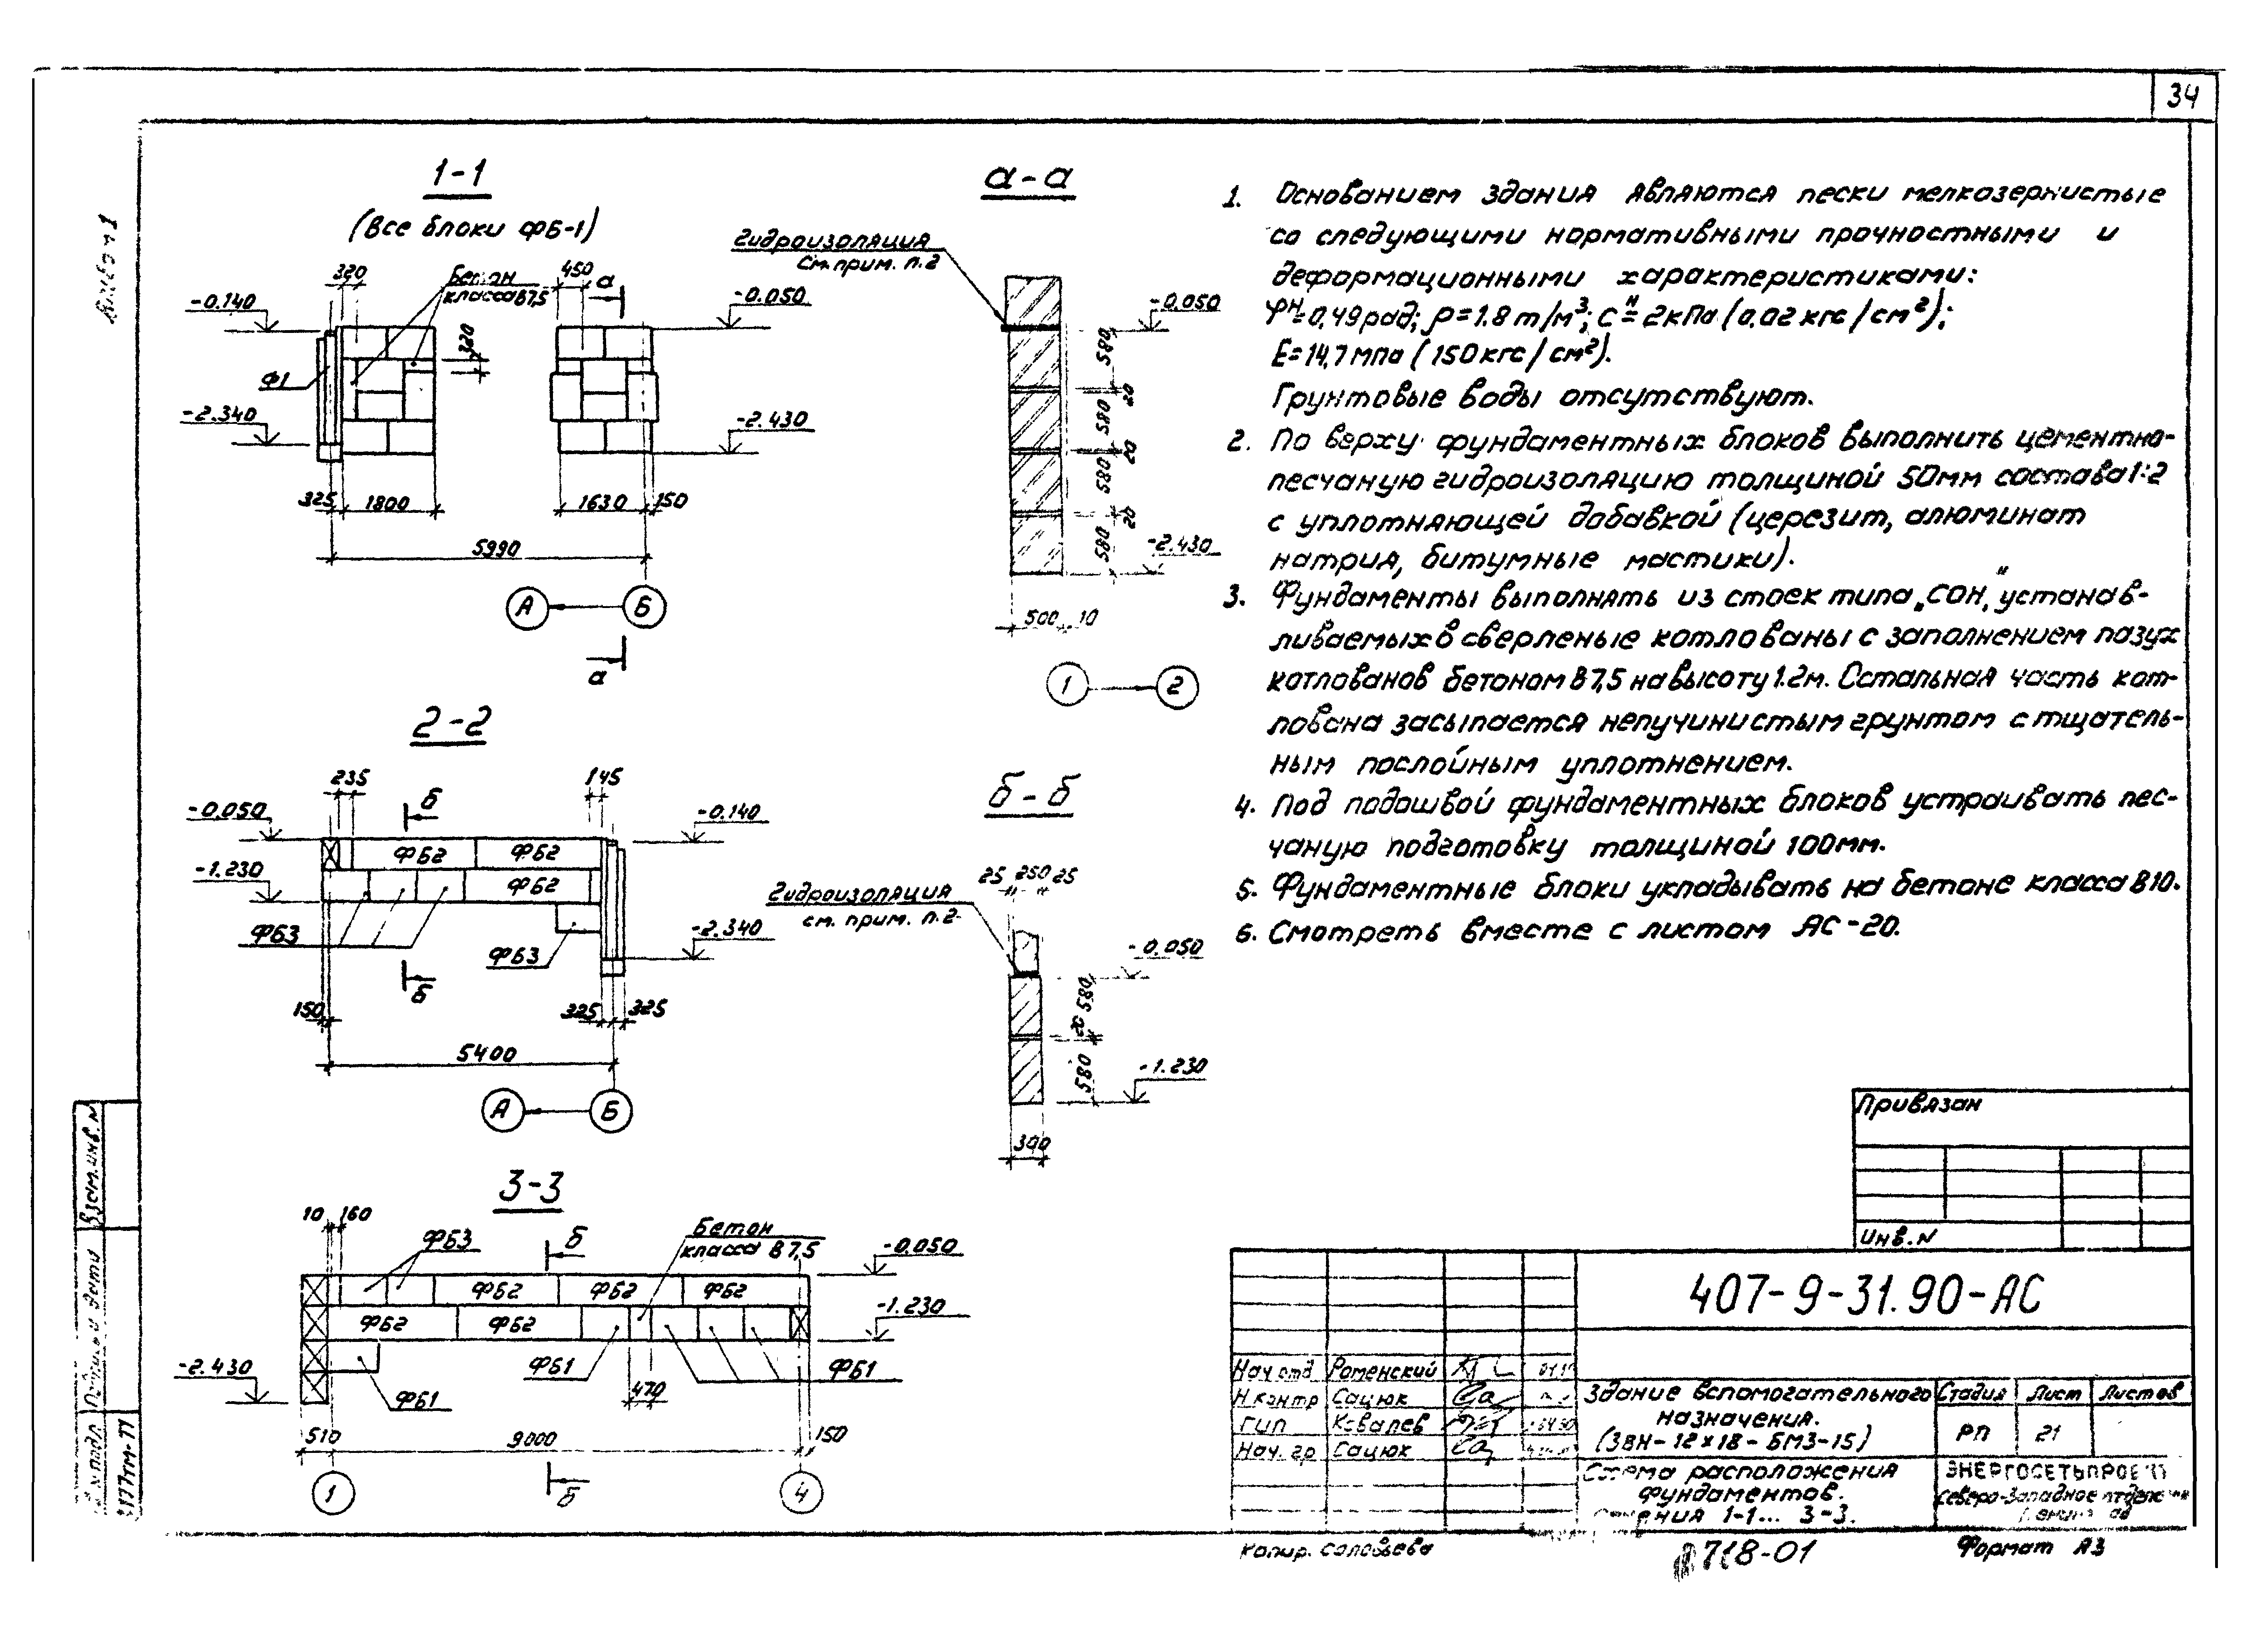 34
Альбом 1
1-1
(Все блоки ФБ-1)
320
Бетон
класса В7,5
450
а
-0.140
-0.050
320
Ф1
-2.340
-2.430
325
1800
1630
150
5990
А
Б
а
а-а
Гидроизоляция
См. прим. п.2
-0.050
580
20
580
20
580
20
580
-2.430
500
10
1
2
2-2
235
145
-0.050
б
-0.140
-1.230
ФБ2
ФБ2
ФБ2
ФБ3
ФБ3
-2.340
б
150
325
325
5400
А
Б
б-б
25 250 25
Гидроизоляция
см. прим. п.2
-0.050
580
20
580
-1.230
300
3-3
10
160
ФБ3
б
Бетон
класса В 7,5
-0.050
ФБ2
ФБ2
ФБ2
-1.230
ФБ2
ФБ2
-2.430
ФБ1
ФБ1
470
ФБ1
510
9000
150
1
б
4
1. Основанием здания являются пески мелкозернистые
со следующими нормативными прочностными и
деформационными характеристиками:
φН=0,49рад; ρ=1.8т/м³; Сн=2кПа (0,02кгс/см²);
Е=14,7мПа (150кгс/см²).
Грунтовые воды отсутствуют.
2. По верху фундаментных блоков выполнить цементно-
песчаную гидроизоляцию толщиной 50мм состава 1:2
с уплотняющей добавкой (церезит, алюминат
натрия, битумные мастики).
3. Фундаменты выполнять из стоек типа „СОН", устанав-
ливаемых в сверленые котлованы с заполнением пазух
котлованов бетоном В7,5 на высоту 1.2м. Остальная часть кот-
лована засыпается непучинистым грунтом с тщатель-
ным послойным уплотнением.
4. Под подошвой фундаментных блоков устраивать пес-
чаную подготовку толщиной 100мм.
5. Фундаментные блоки укладывать на бетоне класса В10.
6. Смотреть вместе с листом АС-20.
Привязан
Инв.N
407-9-31.90-АС
Нач.отд Роменский
Н.контр Сацюк
ГИП Ковалев
Нач. гр Сацюк
Здание вспомогательного
назначения.
(ЗВН-12х18-БМЗ-15)
Стадия Лист Листов
РП 21
Схема расположения
фундаментов.
Сечения 1-1... 3-3.
ЭНЕРГОСЕТЬПРОЕКТ
Северо-Западное отделение
Взам.инв.N
Подпись и дата
Копир. Соловьева
718-01
Формат А3